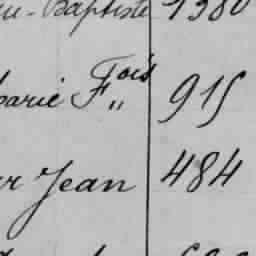 -Baptiste 1380
Marie Fois 915
Jean 484